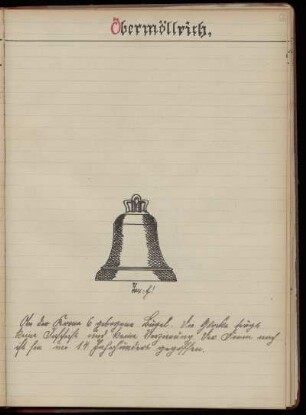 Obermöllrich.
An der Krone 6 gebogene Bügel. Die Glocke trägt
keine Inschrift und keine Verzierung. Der Form nach
ist sie im 14 Jahrhundert gegossen.